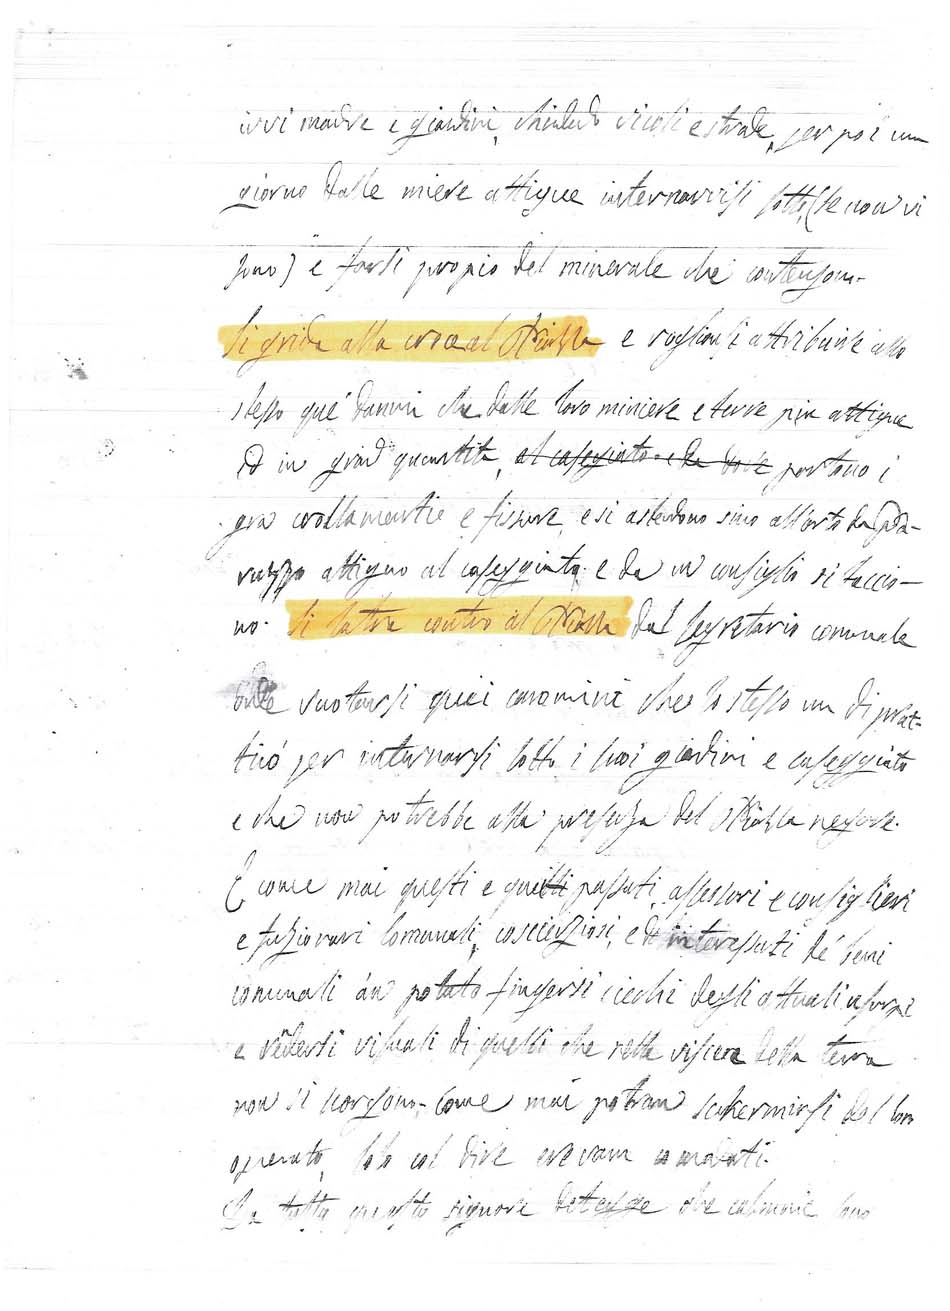 ivi madre e giardini, chiudendo vicoli e strade, per poi un
giorno dalle miere attigue internarvisi sotto, (se non vi
sono) e farsi propio del minerale che contengono.
Si grida alla croce al e vogliansi attribuire allo
stesso que' danni che dalle loro miniere e terre più attigue
ed in gran quantità, al caseggiato e da portano i
gran crollamenti e fissure, e si estendono sino all'orto da
attiguo al caseggiato, e da un consiglio si taccio-
no. Si latra contro al dal segretario comunale
onde vuotarsi quei cammini che lo stesso un di prat-
ticò per internarsi sotto i suoi giardini e caseggiato
e che non potrebbe alla presenza del negare.
E come mai questi e quelli passati, assessori e consiglieri
e funzionari comunali, coscienziosi, ed interessati de' beni
comunali àn potuto fingersi ciechi degli attuali usurpi
e vedersi visuali di quelli che nelle viscere della terra
non si scorgono. Come mai potran schermirsi del loro
operato, solo col dire eravam
Da tutto questo signore che calunnie sono